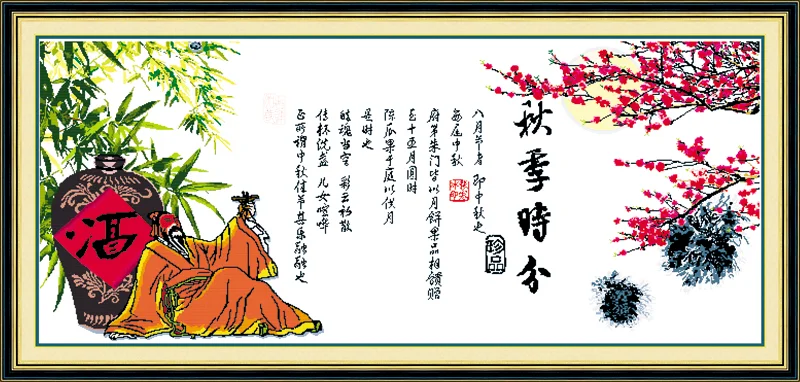 秋季時分
八月节者 即中秋也
每届中秋
府第朱门皆以月餅果品相饋赠
至十五月圆时
陈瓜果于庭以供月
是时也
皓魂当空 彩云初散
传杯洗盏 儿女喧哗
正所谓中秋佳节其乐融融也
珍品
酒